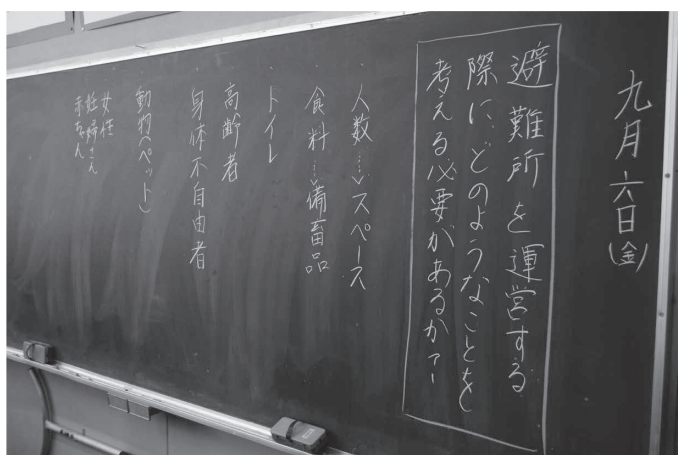 九月六日(金)
避難所を運営する
際に、どのようなことを
考える必要があるか?
・人数…スペース
・食料…備畜品
・トイレ
・高齢者
・身体不自由者
・動物(ペット)
・女性
妊婦さん
赤ちゃん